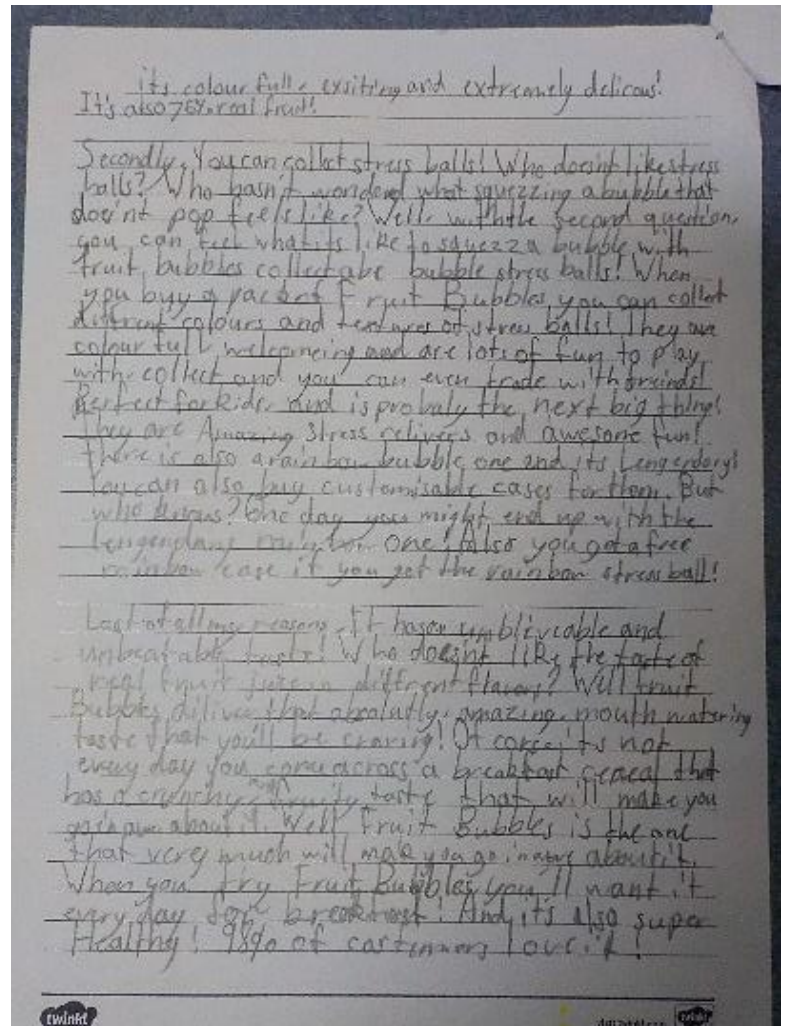 its colourfull, exsiting and extremely delicous!
It's also 76% real fruit!
Secondly, You can collect stress balls! Who doesn't like stress
balls? Who hasn't wonderd what squezzing a bubble that
does'nt pop feels like? Well, with the second question,
you can feel what its like to squezz a bubble with
fruit bubbles collectabe bubble stress balls! When
you buy a packet of Fruit Bubbles, you can collect
different colours and textures of stress balls! They are
colourfull, welcomeing and are lots of fun to play
with, collect and you can even trade with freinds!
Perfect for kids, and is probaly the next big thing!
They are Amazing Stress relivers and awesome fun!
there is also a rainbow bubble one and its Lengerdary!
You can also buy customisable cases for them. But
who knows? One day you might end up with the
rainbow one! Also you get a free
rainbow case if you get the rainbow stress ball!
Last of all my reasons, It has an unbliveable and
unbeatable taste! Who doesn't like the taste of
real fruit juice in different flavors? Well fruit
Bubbles diliver that absolutly, amazing, mouth watering
taste that you'll be craving! Of corse, it's not
every day you come across a breakfast cereal that
has a crunchy, fruity taste that will make you
go about it. Well, Fruit Bubbles is the one
that very much will make you go about it.
When you try Fruit Bubbles, you'll want it
every day for breakfast! And it's also super
Healthy! 98% of castimers love it!
twinkl